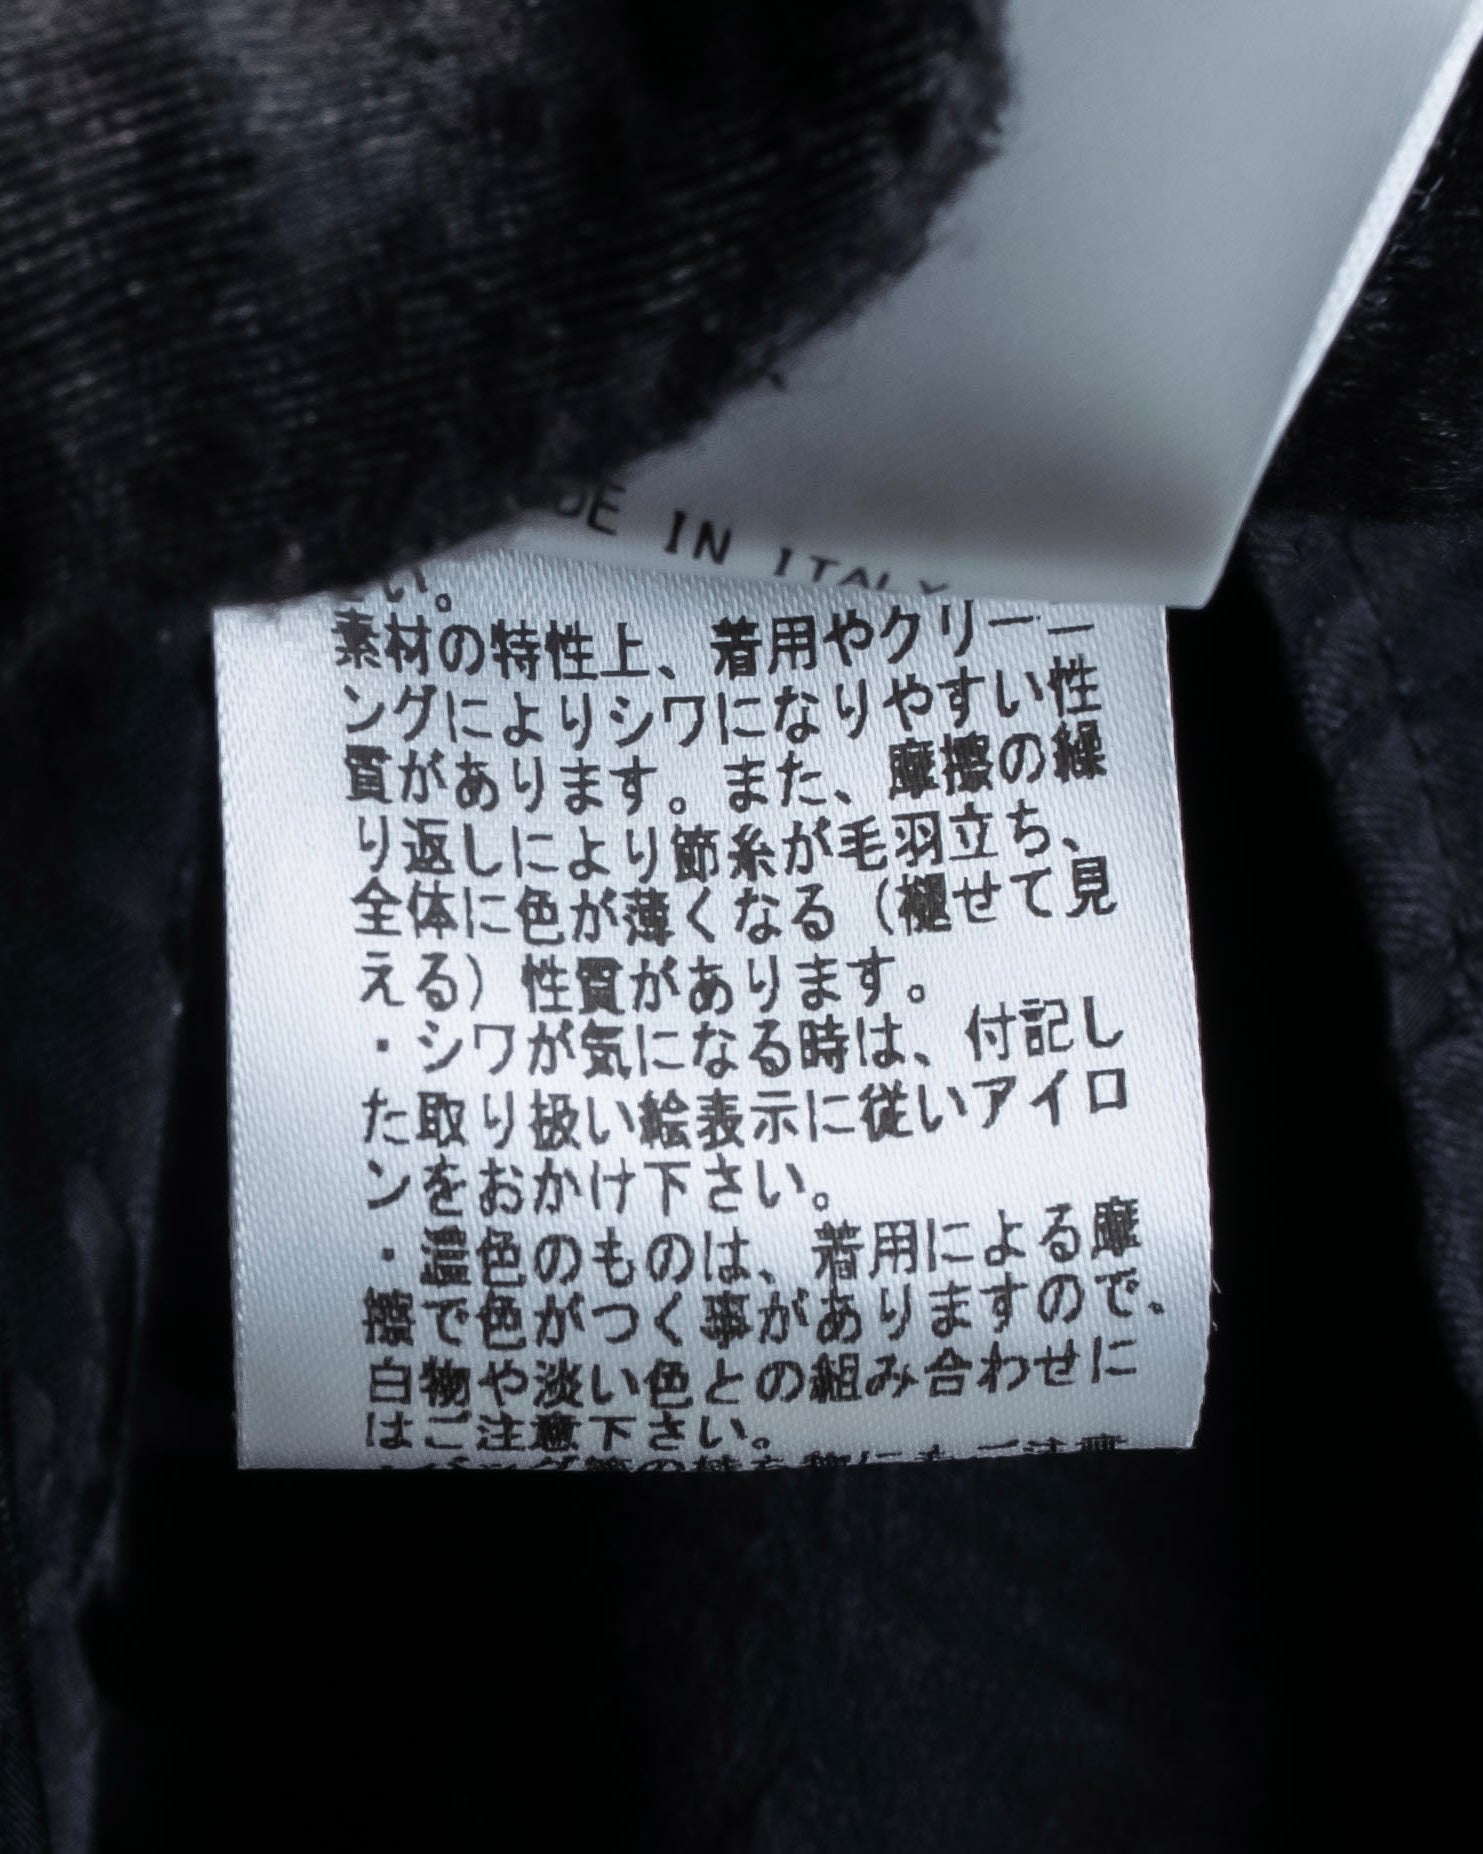 MADE IN ITALY
い。
素材の特性上、着用やクリーニ
ングによりシワになりやすい性
質があります。また、摩擦の繰
り返しにより節糸が毛羽立ち、
全体に色が薄くなる（褪せて見
える）性質があります。
・シワが気になる時は、付記し
た取り扱い絵表示に従いアイロ
ンをおかけ下さい。
・濃色のものは、着用による摩
擦で色がつく事がありますので、
白物や淡い色との組み合わせに
はご注意下さい。